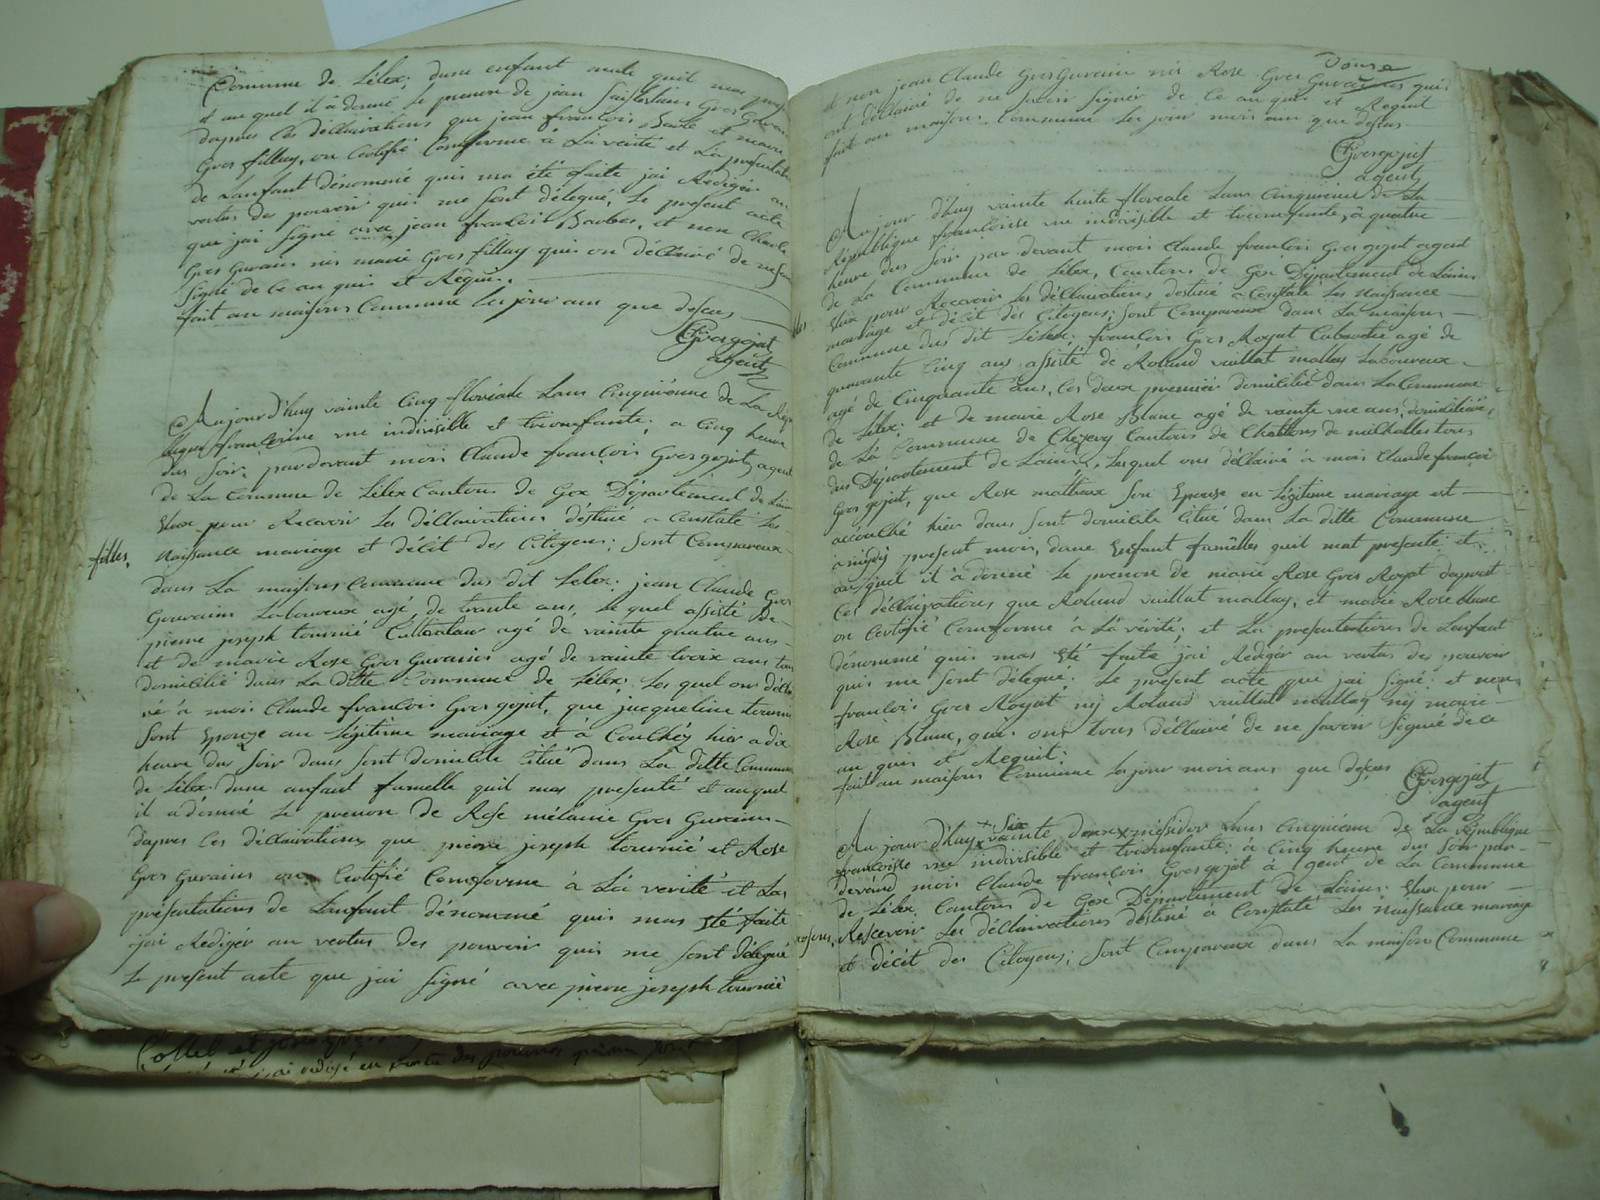 Commune de Lélex; dune enfant male quil mas
et au quel il à donné le prenon de jean
dapres les déllairations que jean françois Barbe et marie
Gros fillay, on Certifié Comforme à La vérité et La présentation
de Lanfant dénommé quis ma été faite jai Redigér au
vertus des pouvoir quis me sont délégué, le present acte
que jai signé avec jean françois Barbe, et non Claude
Gros Gurain nis marie Gros fillay quis on déllairé de ne savoir
signé de ce an quis et Réquis.
fait au maisons Commune les jour ans que dessus
Grosgojat
agent
Aujourd'huy vainte Cinq floriale Lans Cinquiéme de La Répu
blique françoise une indivisible et trionfante; a Cinq heure
dus soir, pardevant mois Claude françois Grosgojat, agent
de La Commune de Lélex Cantons de Gex Département de Lain
Elus pour Recevoir les déllairations destiné a Constaté les
filles, Naissance mariage et décit des Citoyens; sont Compareux
dans La maisons Commune dus dit Lelex. jean Claude Gros
Gurains Laboureux agé, de trante ans, le quel assisté De
pierre joseph tournié Cultivataur agé de vainte quatre ans
et de marie Rose Gros Gurains agé de vainte troix ans tous
domicilié dans La ditte Commune de Lélex; Les quel on délla
ré à mois Claude françois Grosgojat, que jacqueline tournié
sont Epouze an légitime mariage et à Couchéz hier a dix
heure dus soir dans sont domicile Citué dans La ditte Commune
de Lélex dune anfant fumelle quil mas présenté et auquel
il a donné le prenon de Rose mélanie Gros Gurains
Dapres les déllairations que pierre joseph tournié et Rose
Gros Gurains on Certifié Comforme à Là verité et Las
présentations de Lanfant dénommé quis mas Eté faite
jai Redigér au vertus des pouvoir quis me sont délégué
Le présent acte que jai signé avec pierre joseph tournié
Douze
et non jean Claude Gros Gurain nis Rose Gros Gurains quis
ont déllairé de ne savoir signér de Ce an quis et Requit
fait au maisons Commune les jour mois ans que dessus
Grosgojat
agent
Au jour d'huy vainte huite floreale Lans Cinquiéme de La
République françoisse une indivisible et trionfante, à quatre
heure dus soir par devant mois Claude françois Grosgojat agent
de La Commune de Lélex, Cantons de Gex Département de Lains
Elus pour Recevoir les déllairations destiné a Constaté les Naissance
mariage et décit des Citoyens; sont Compareux dans La maisons
Commune dus dit Lélex; françois Gros Royat Cabaretié agé de
quarante Cinq ans assisté de Roland vuillat mallay Laboureux
agé de Cinquante ans, les deux premiér domicilié dans La Commune
de Lélex. et de marie Rose Blanc agé de vainte une ans, domiciliée,
de Là Commune de Chézery Cantons de Chatillons de michailles tous
dus Département de Lains, Lesquel ons déllairé à mois Claude françois
Gros gojat, que Rose mathieux son Epouse en légitime mariage est
accouché hier dans sont domicile Citué dans La ditte Commune
à midis present mois, dune Enfant fumelles quil mat presenté et
au quel il à donné le prenon de marie Rose Gros Royat dapres
Les déllairations que Roland vuillat mallay, et marie Rose Blanc
on Certifié Comforme à Là vérité, et La présentations de Lanfant
dénommé quis mas Eté faite jai Redigér au vertus des pouvoir
quis me sont délégué. Le present acte que jai signé et non
françois Gros Royat nij Roland vuillat mallay nij marie
Rose Blanc, quis ons tous déllairé de ne savoir signié de ce
an quis et Requit;
fait au maisons Commune les jour mois ans que dessus Grosgojat
agent
Au jour d'huy vainte Six messidor Lans Cinquiéme de La République
françoisse une indivisible et trionfante; à Cinq heure dus soir par
devand mois Claude françois Grosgojat à Lgent de La Commune
de Lélex Cantons de Gex Département de Lains. Elus pour
Rescevoir les déllairations destiné a Constaté Les Naissance mariage
et décit des Citoyens; sont Compareux dans La maisons Commune